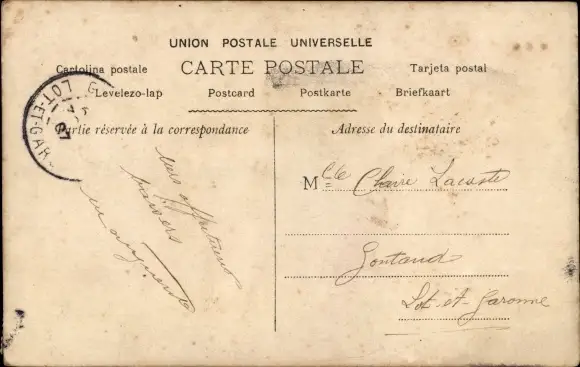 UNION POSTALE UNIVERSELLE
Cartolina postale CARTE POSTALE Tarjeta postal
Levelezo-lap Postcard Postkarte Briefkaart
LOT-ET-GAR
07
Partie réservée à la correspondance
Adresse du destinataire
Mlle Claire Lacoste
Gontaud
Lot-et-Garonne
baisers